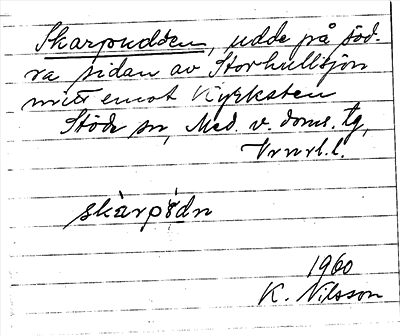 Skarpudden, udde på söd-
ra sidan av Storhullsjön
mitt emot Kyrksten
Stöde sn, Med. v. doms. tg,
Vrnrl.l.
skàrpødn
1960
K. Nilsson